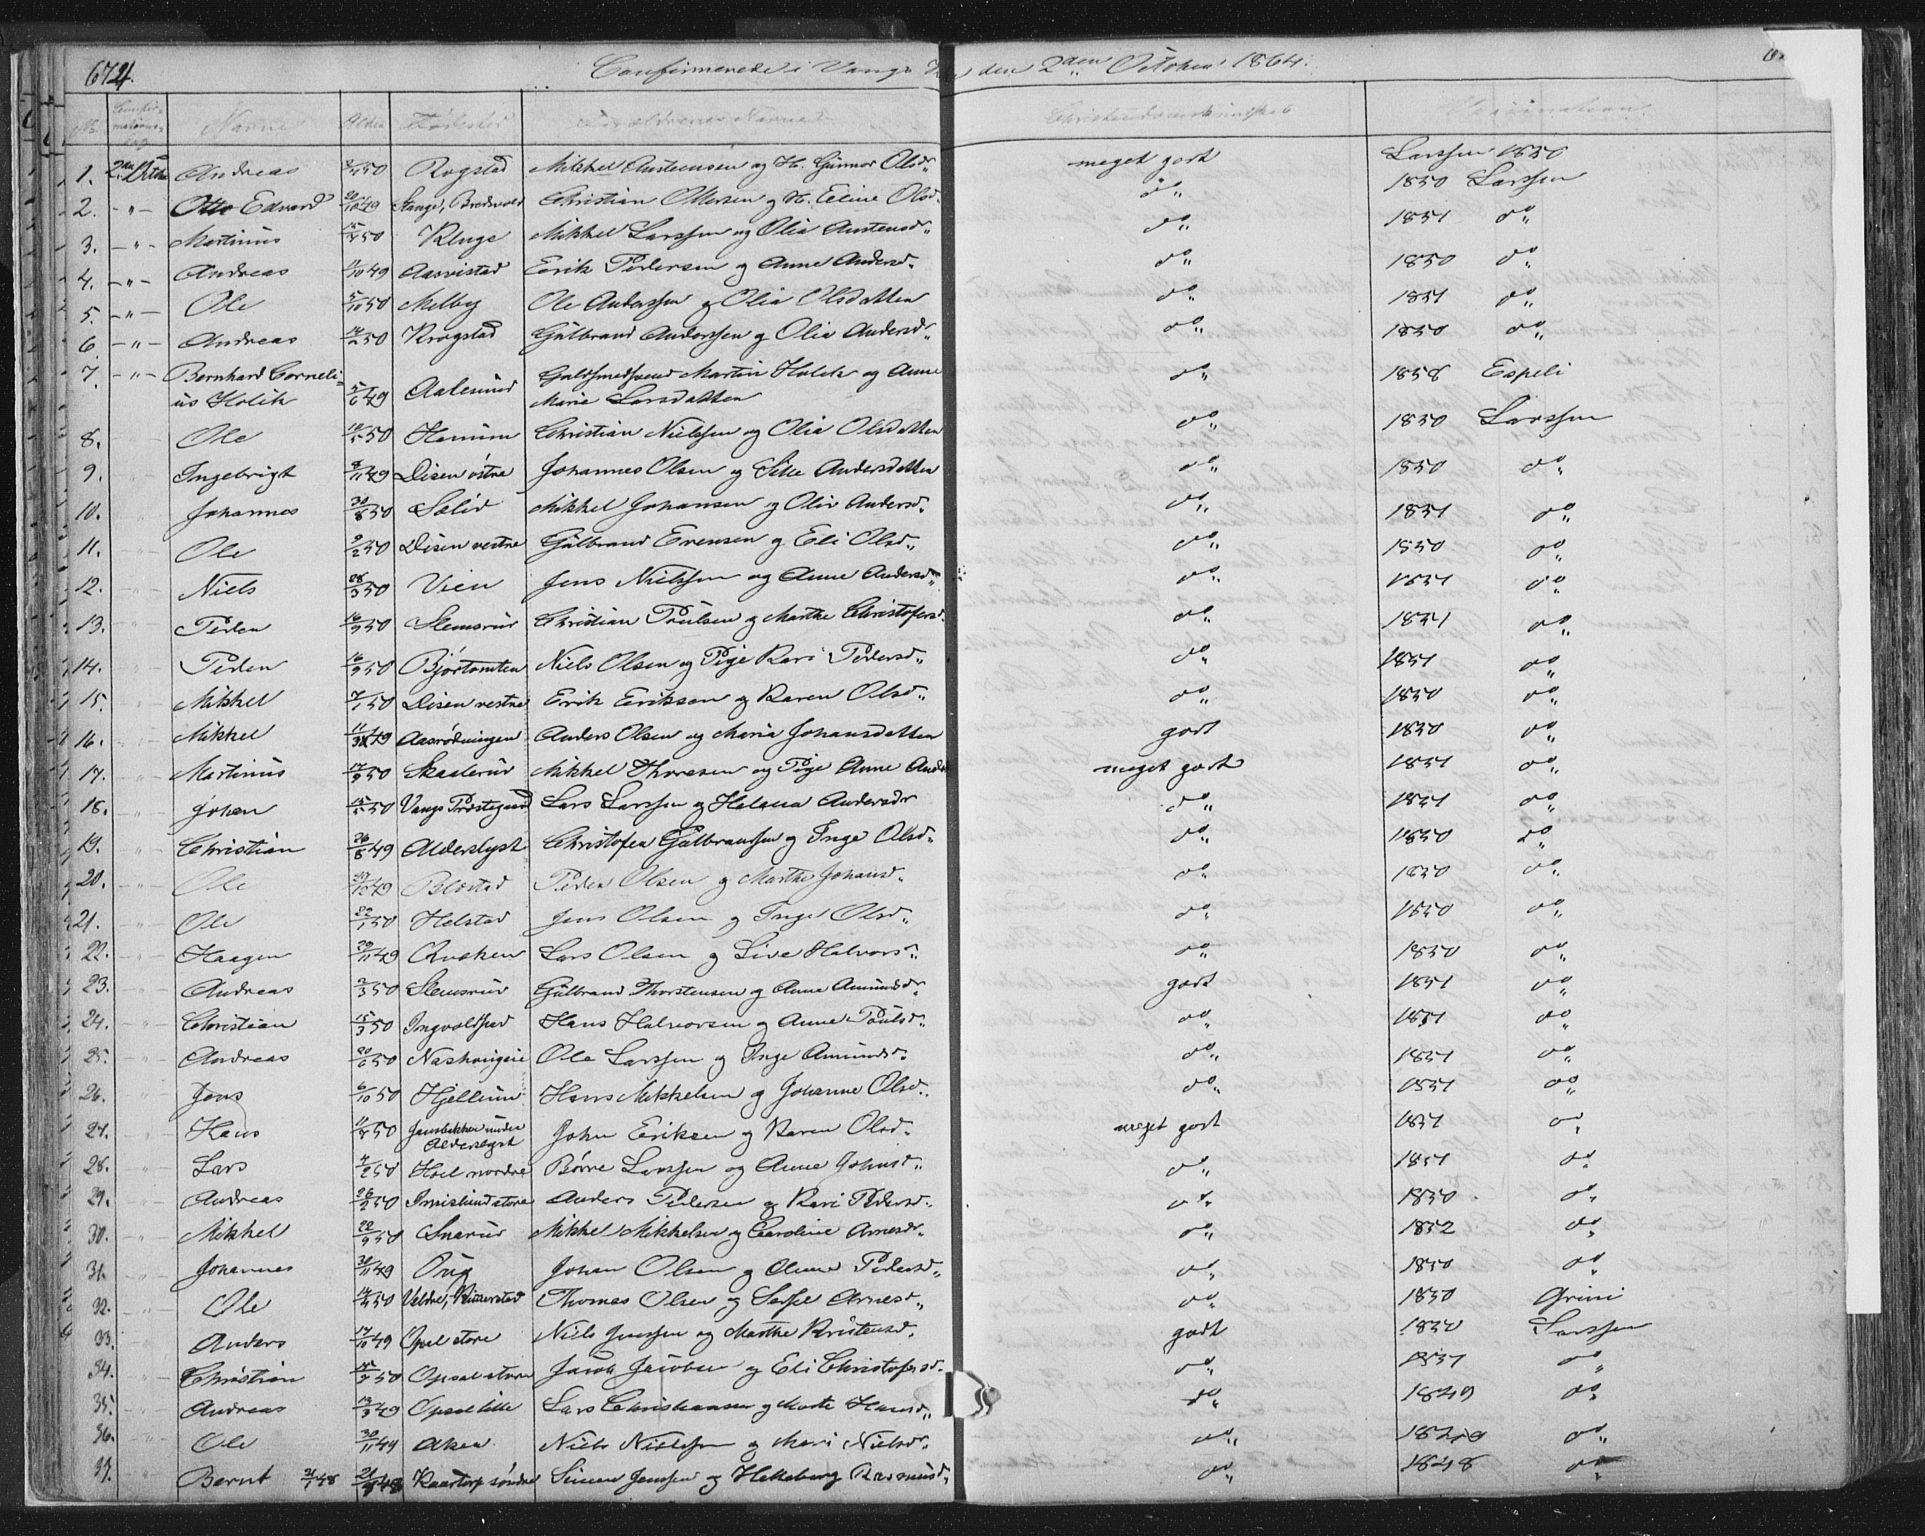 674. Confirmerede i Vangs den 2den October 1864.
No. Navne Alder Fødested Forældrenes Navne Christendomskundskab Vaccination
1. 2den Octbr Andreas 50 Rogstad Mikkel Austensen og H. Gunnor Olsd. meget godt Larssen 1850
2. -"- Otto Edvard 49 Stange, Christian Olsen og H. Eline Olsd. do 1850 Larssen
3. -"- Martinus 50 Kluge Mikkel Larssen og Olia Austensd. do 1851 do
4. -"- Andreas 49 Aasvistad Erik Pedersen og Anne Andersd. do 1850 do
5. -"- Ole 5/10 50 Melby Ole Anderssen og Olia Olsdatter do 1851 do
6. -"- Andreas 50 Krogstad Gulbrand Anderssen og Olia Andersd. do 1850 do
7. -"- Bernhard Corneli- Guldsmedsvend Martin Holck og Anne do 1858 Espeli
us Holck 49 Aalesund Marie Larsdatter
8. Ole 50 Homum Christian Nielssen og Olia Olsdatter do 1850 Larssen
9. Ingebrigt 8/11 49 Disen østre Johannes Olsen og Sille Andersdatter do 1850 do
10. Johannes 30/8 50 Solid Mikkel Johansen og Oliv Andersd. do 1851 do
11. Ole 9/2 50 Disen vestre Gulbrand Evensen og Eli Olsd. do 1850 do
12. Niels 28/3 50 Vien Jens Nielssen og Anne Andersd. do 1851 do
13. Peder 50 Stemsrud Christian Poulsen og Marthe Christofersd. do 1851 do
14. Peder 50 Bjørtomten Niels Olsen og Pige Kari Pedersd. do 1851 do
15. Mikkel 50 Disen vestre Erik Eriksen og Karen Olsd. do 1850 do
16. Mikkel 49 Aasrødningen Anders Olsen og Maria Johansdatter godt 1850 do
17. Martinus 50 Skaaterud Mikkel Thoresen og Pige Anne Ander meget godt 1851 do
18. Johan 50 Vangs Præstegaard Lars Larssen og Helena Andersdr do 1851 do
19. Christian 26/8 49 Alderslyst Christofer Gulbranssen og Inge Olsd. do 1850 do
20. Ole 49 Blæstad Peder Olsen og Marthe Johansd. do 1850 do
21. Ole 50 Helstad Jens Olsen og Inge Olsd. do 1850 do
22. Haagen 29/11 49 Lars Olsen og Live Halvorsd. do 1850 do
23. Andreas 2/3 50 Stemsrud Gulbrand Thorstensen og Anne Amundsd. godt 1851 do
24. Christian 15/3 50 Ingvoldstad Hans Halvorsen og Anne Poulsd. do 1851 do
25. Andreas 20/6 50 Ole Larssen og Inge Amundsd. do 1851 do
26. Jens 6/10 50 Hjellum Hans Mikkelsen og Johanne Olsd. do 1851 do
27. Hans 50 Jansbakken under John Eriksen og Karen Olsd. meget godt 1851 do
Alderslyst
28. Lars 50 Hoel nordre Børre Larssen og Anne Johnsd. do 1851 do
29. Andreas 50 Imislund store Anders Pedersen og Kari Pedersd. do 1850 do
30. Mikkel 50 Snarud Mikkel Mikkelsen og Caroline Arnesdr. do 1852 do
31. Johannes 30/11 49 Ring Johan Olsen og Anne Pedersd. do 1850 do
32. Ole 50 Veldre, Thomas Olsen og Sersel Arnesd. do 1850 Grini
33. Anders 17/10 49 Opsal store Niels Jenssen og Marthe Kristensd. godt 1850 Larssen
34. Christian 50 Opsal store Jacob Jacobsen og Eli Christofersd. do 1851 do
35. Andreas 49 Opsal lille Lars Christiansen og Marte Hansd. do 1849 do
36. Ole 30/11 49 Aker Niels Nielssen og Mari Nielsd. do do
37. Bernt 48 Kaatorp søndre Simen Jenssen og Helleborg Rasmusd. do 1848 do